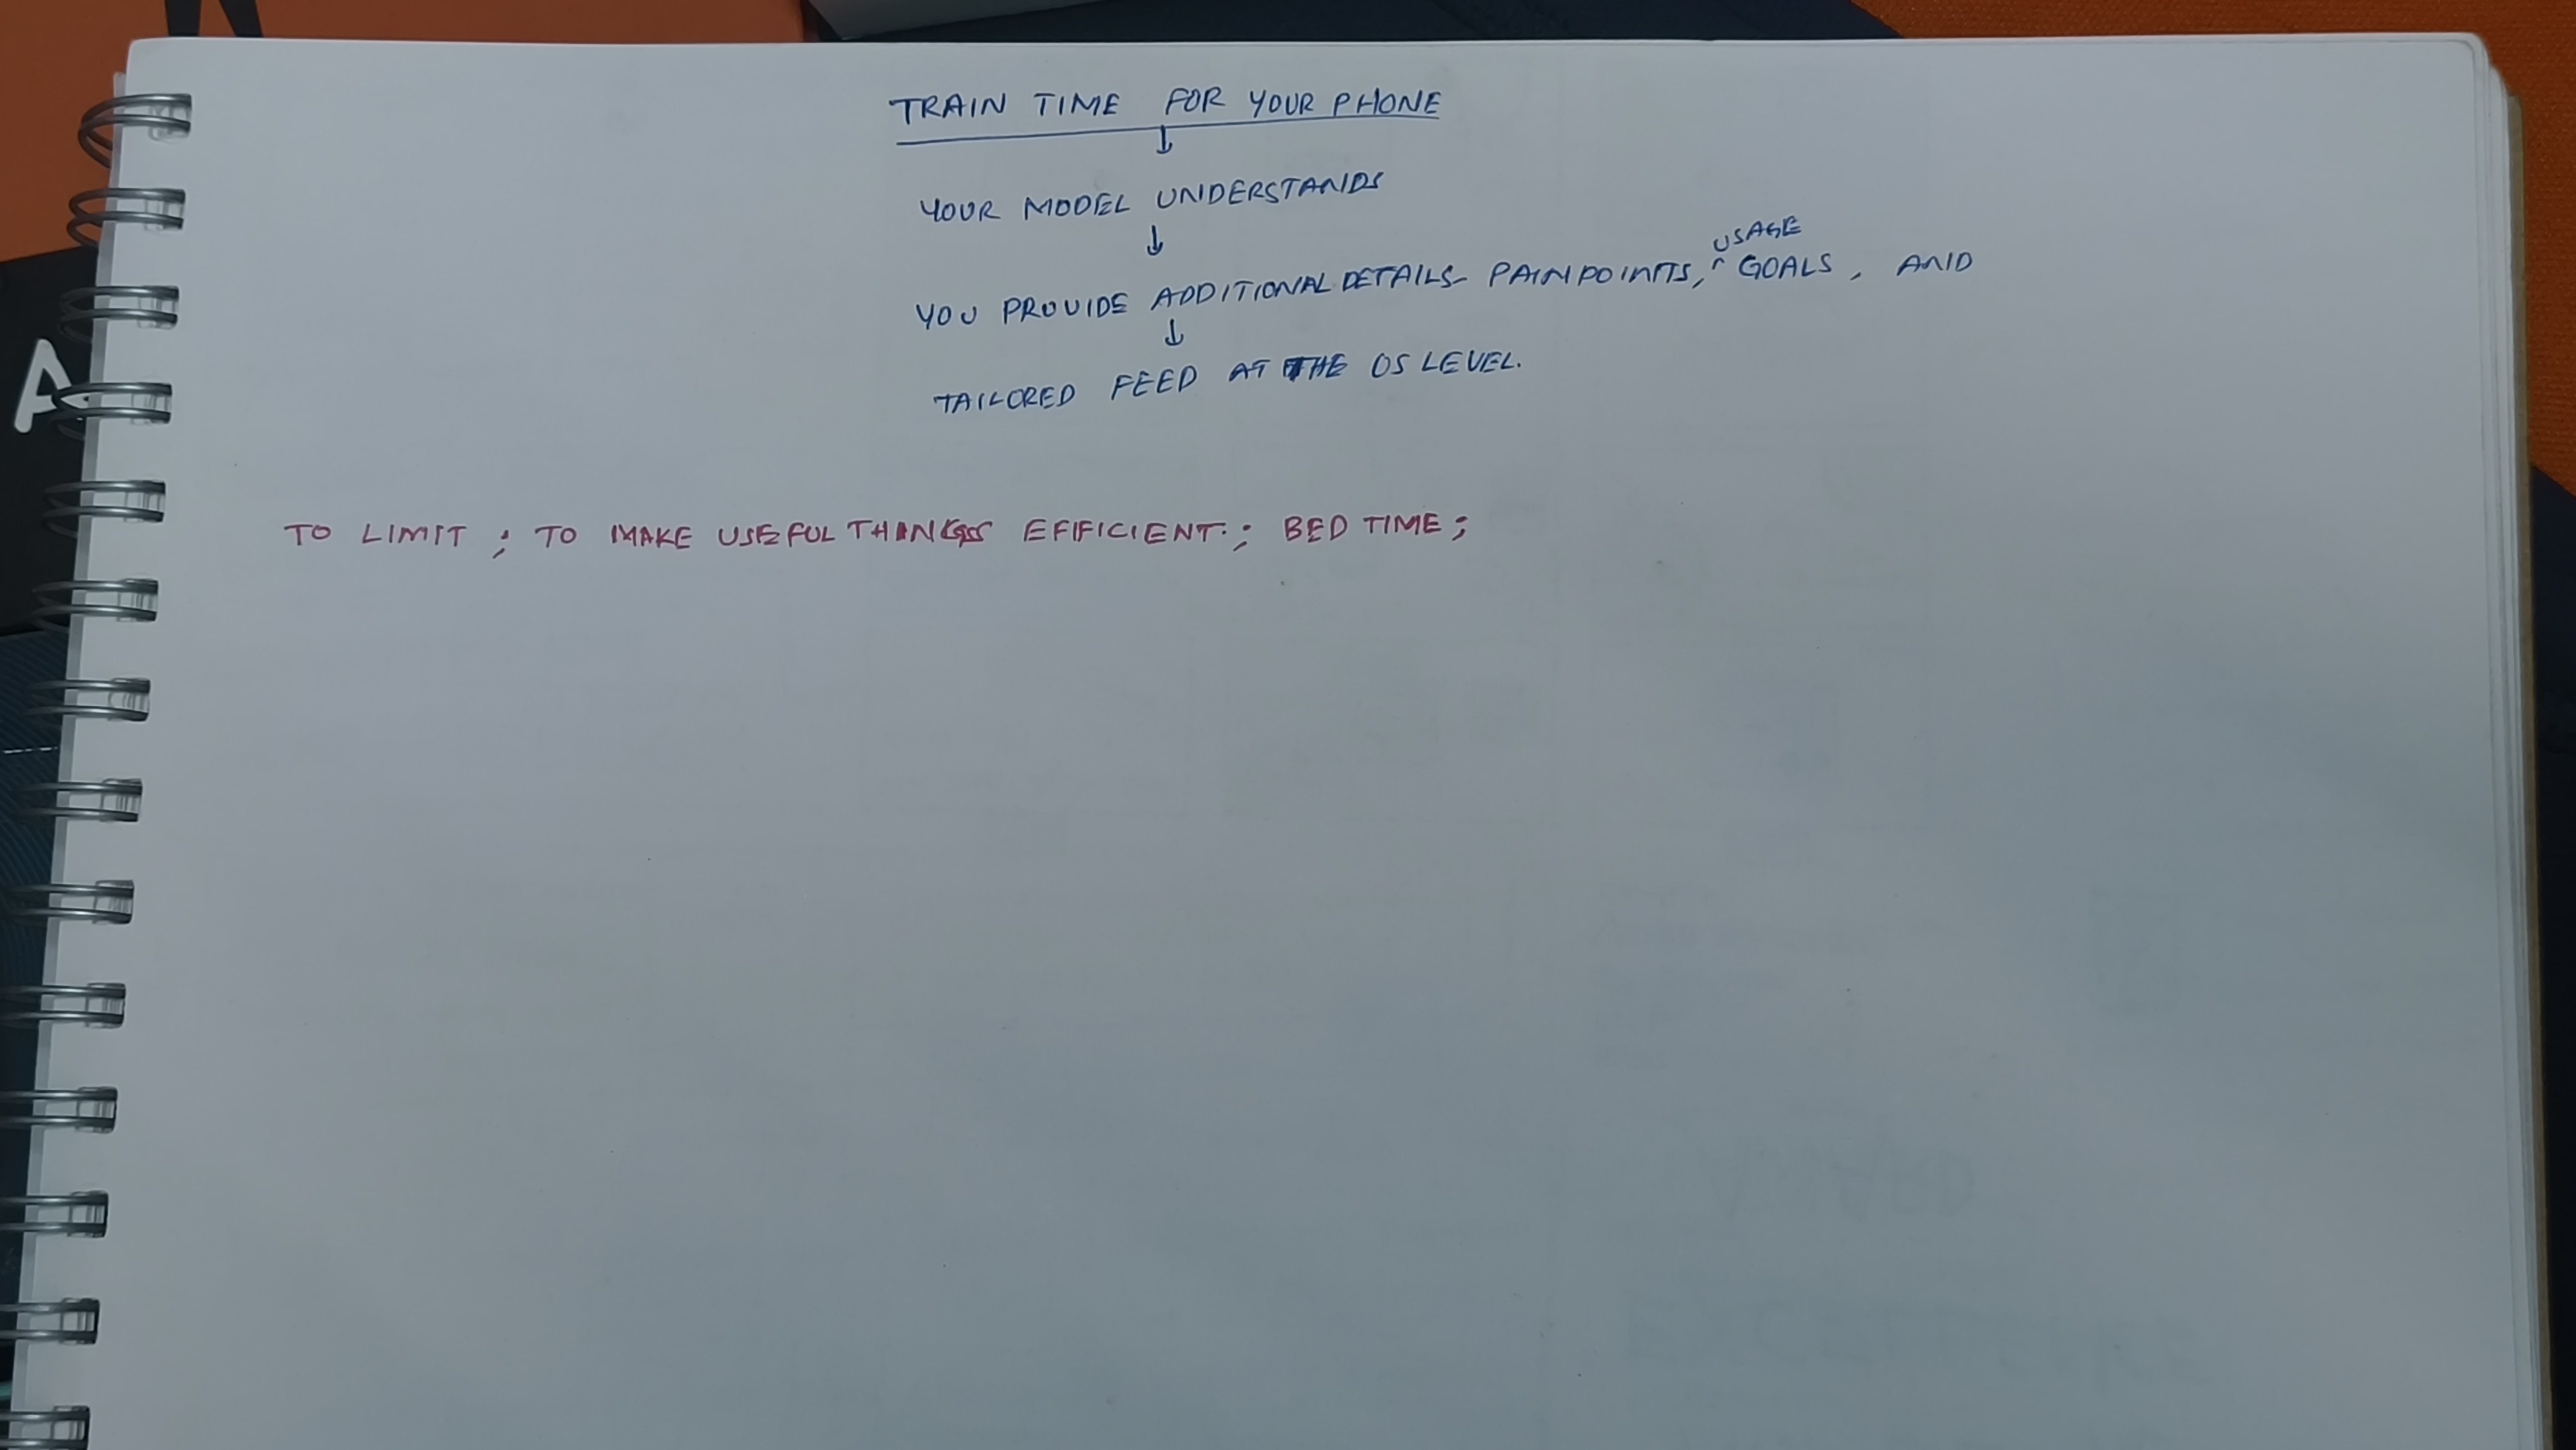 TRAIN TIME FOR YOUR PHONE
↓
YOUR MODEL UNDERSTANDS
↓
YOU PROVIDE ADDITIONAL DETAILS- PAINPOINTS, ^USAGE GOALS, AND
↓
TAILORED FEED AT THE OS LEVEL.
TO LIMIT ; TO MAKE USEFUL THINGS EFFICIENT. ; BED TIME ;
A